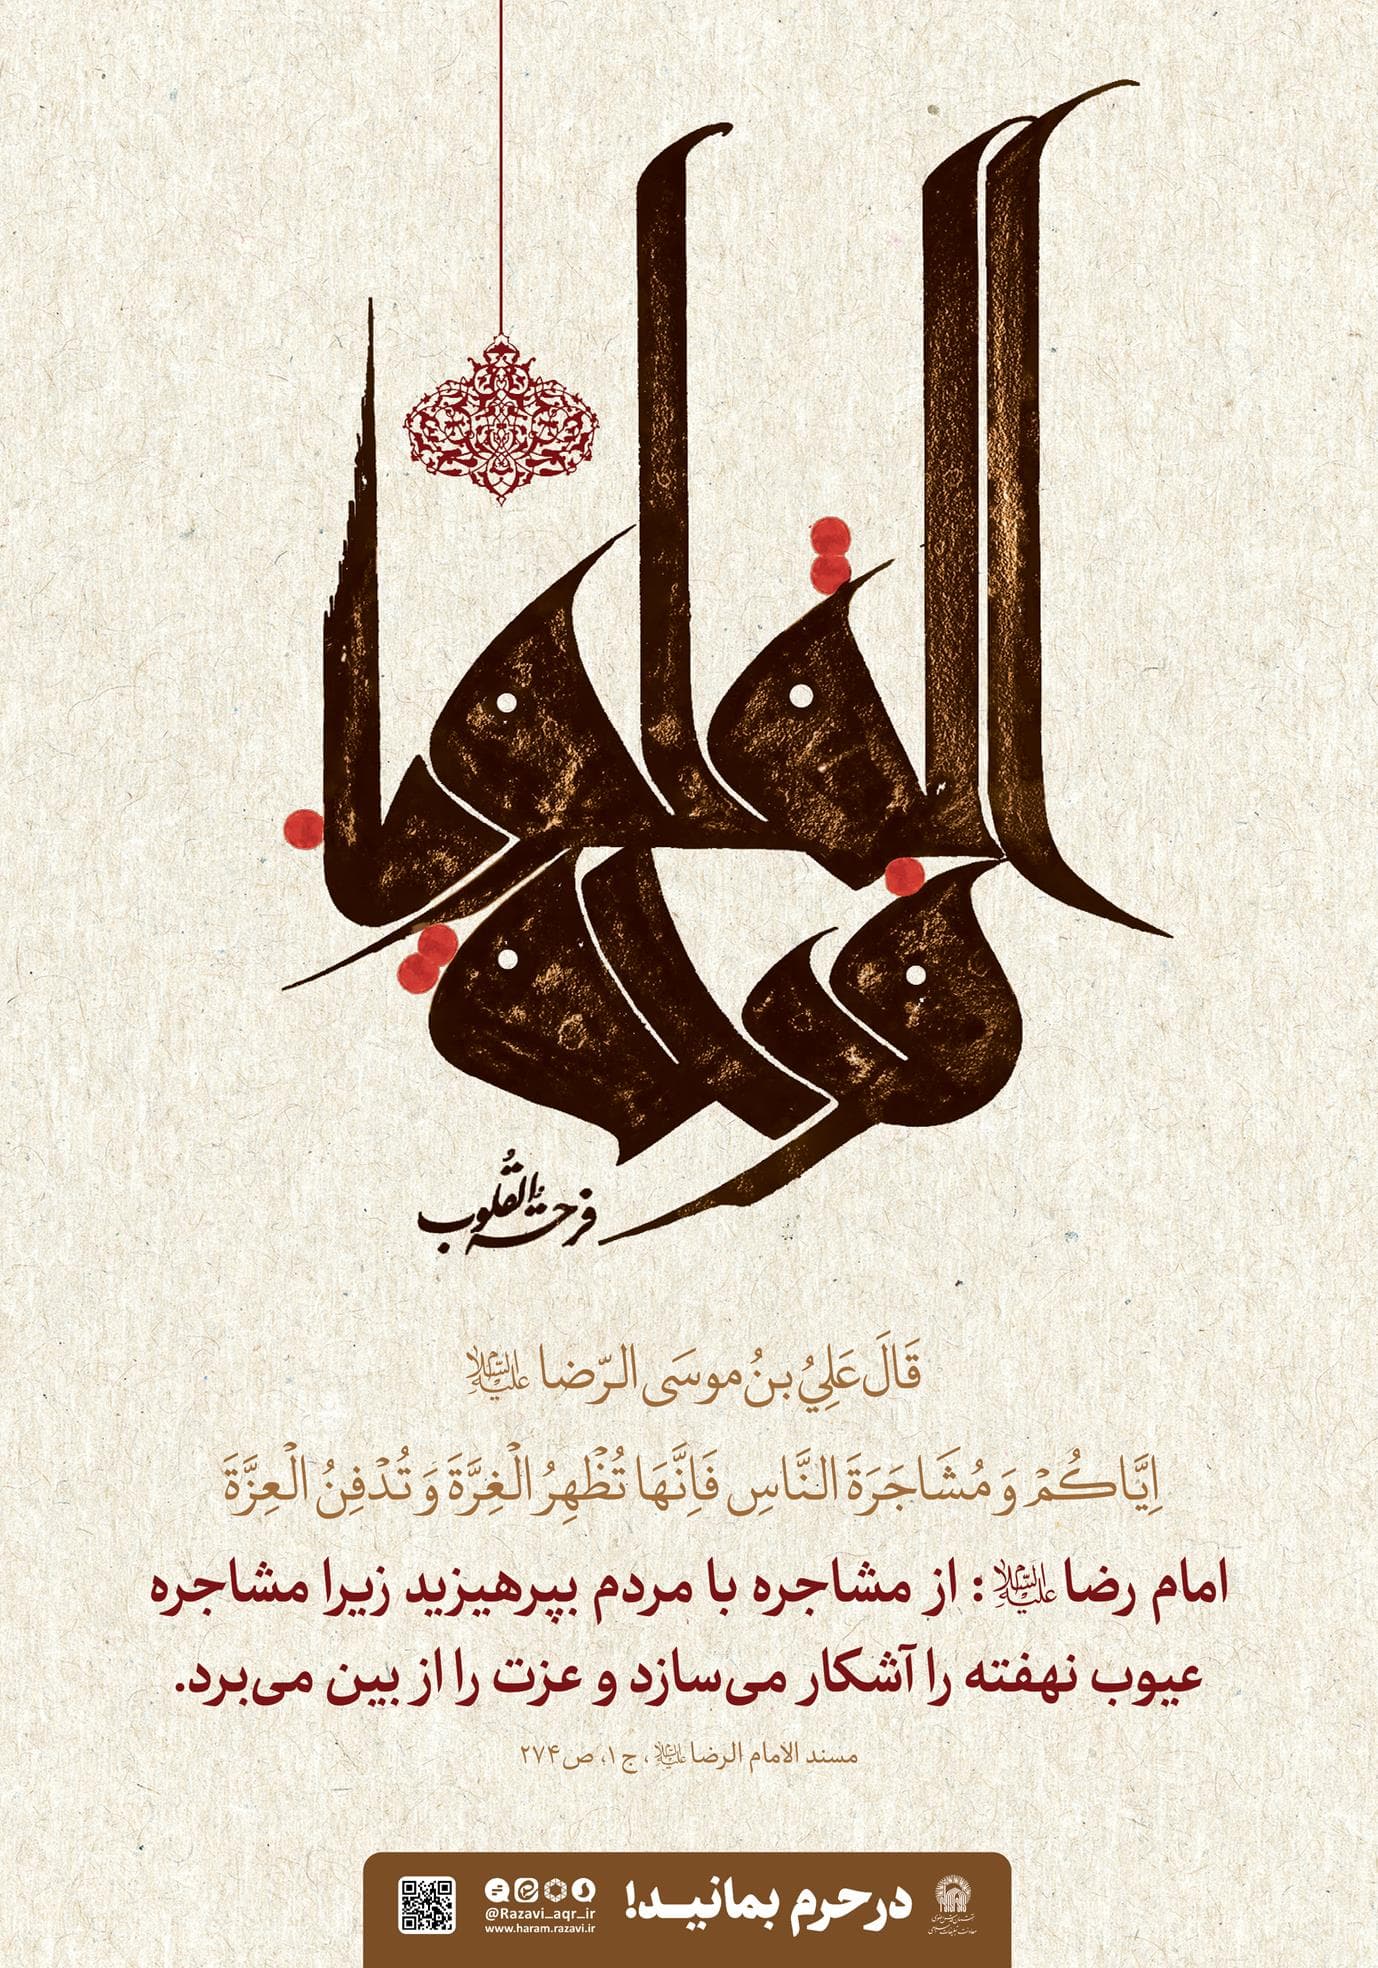 فرحة القلوب
فرحة القلوب
قَالَ عَلِيُ بنُ موسَى الرّضا علیه‌السلام
اِیَّاكُمْ وَ مُشَاجَرَةَ النَّاسِ فَاِنَّهَا تُظْهِرُ الْغِرَّةَ وَ تُدْفِنُ الْعِزَّةَ
امام رضا علیه‌السلام : از مشاجره با مردم بپرهیزید زیرا مشاجره
عیوب نهفته را آشکار می‌سازد و عزت را از بین می‌برد.
مسند الامام الرضا علیه‌السلام ، ج ۱، ص ۲۷۴
در حرم بمانید!
@Razavi_aqr_ir
www.haram.razavi.ir